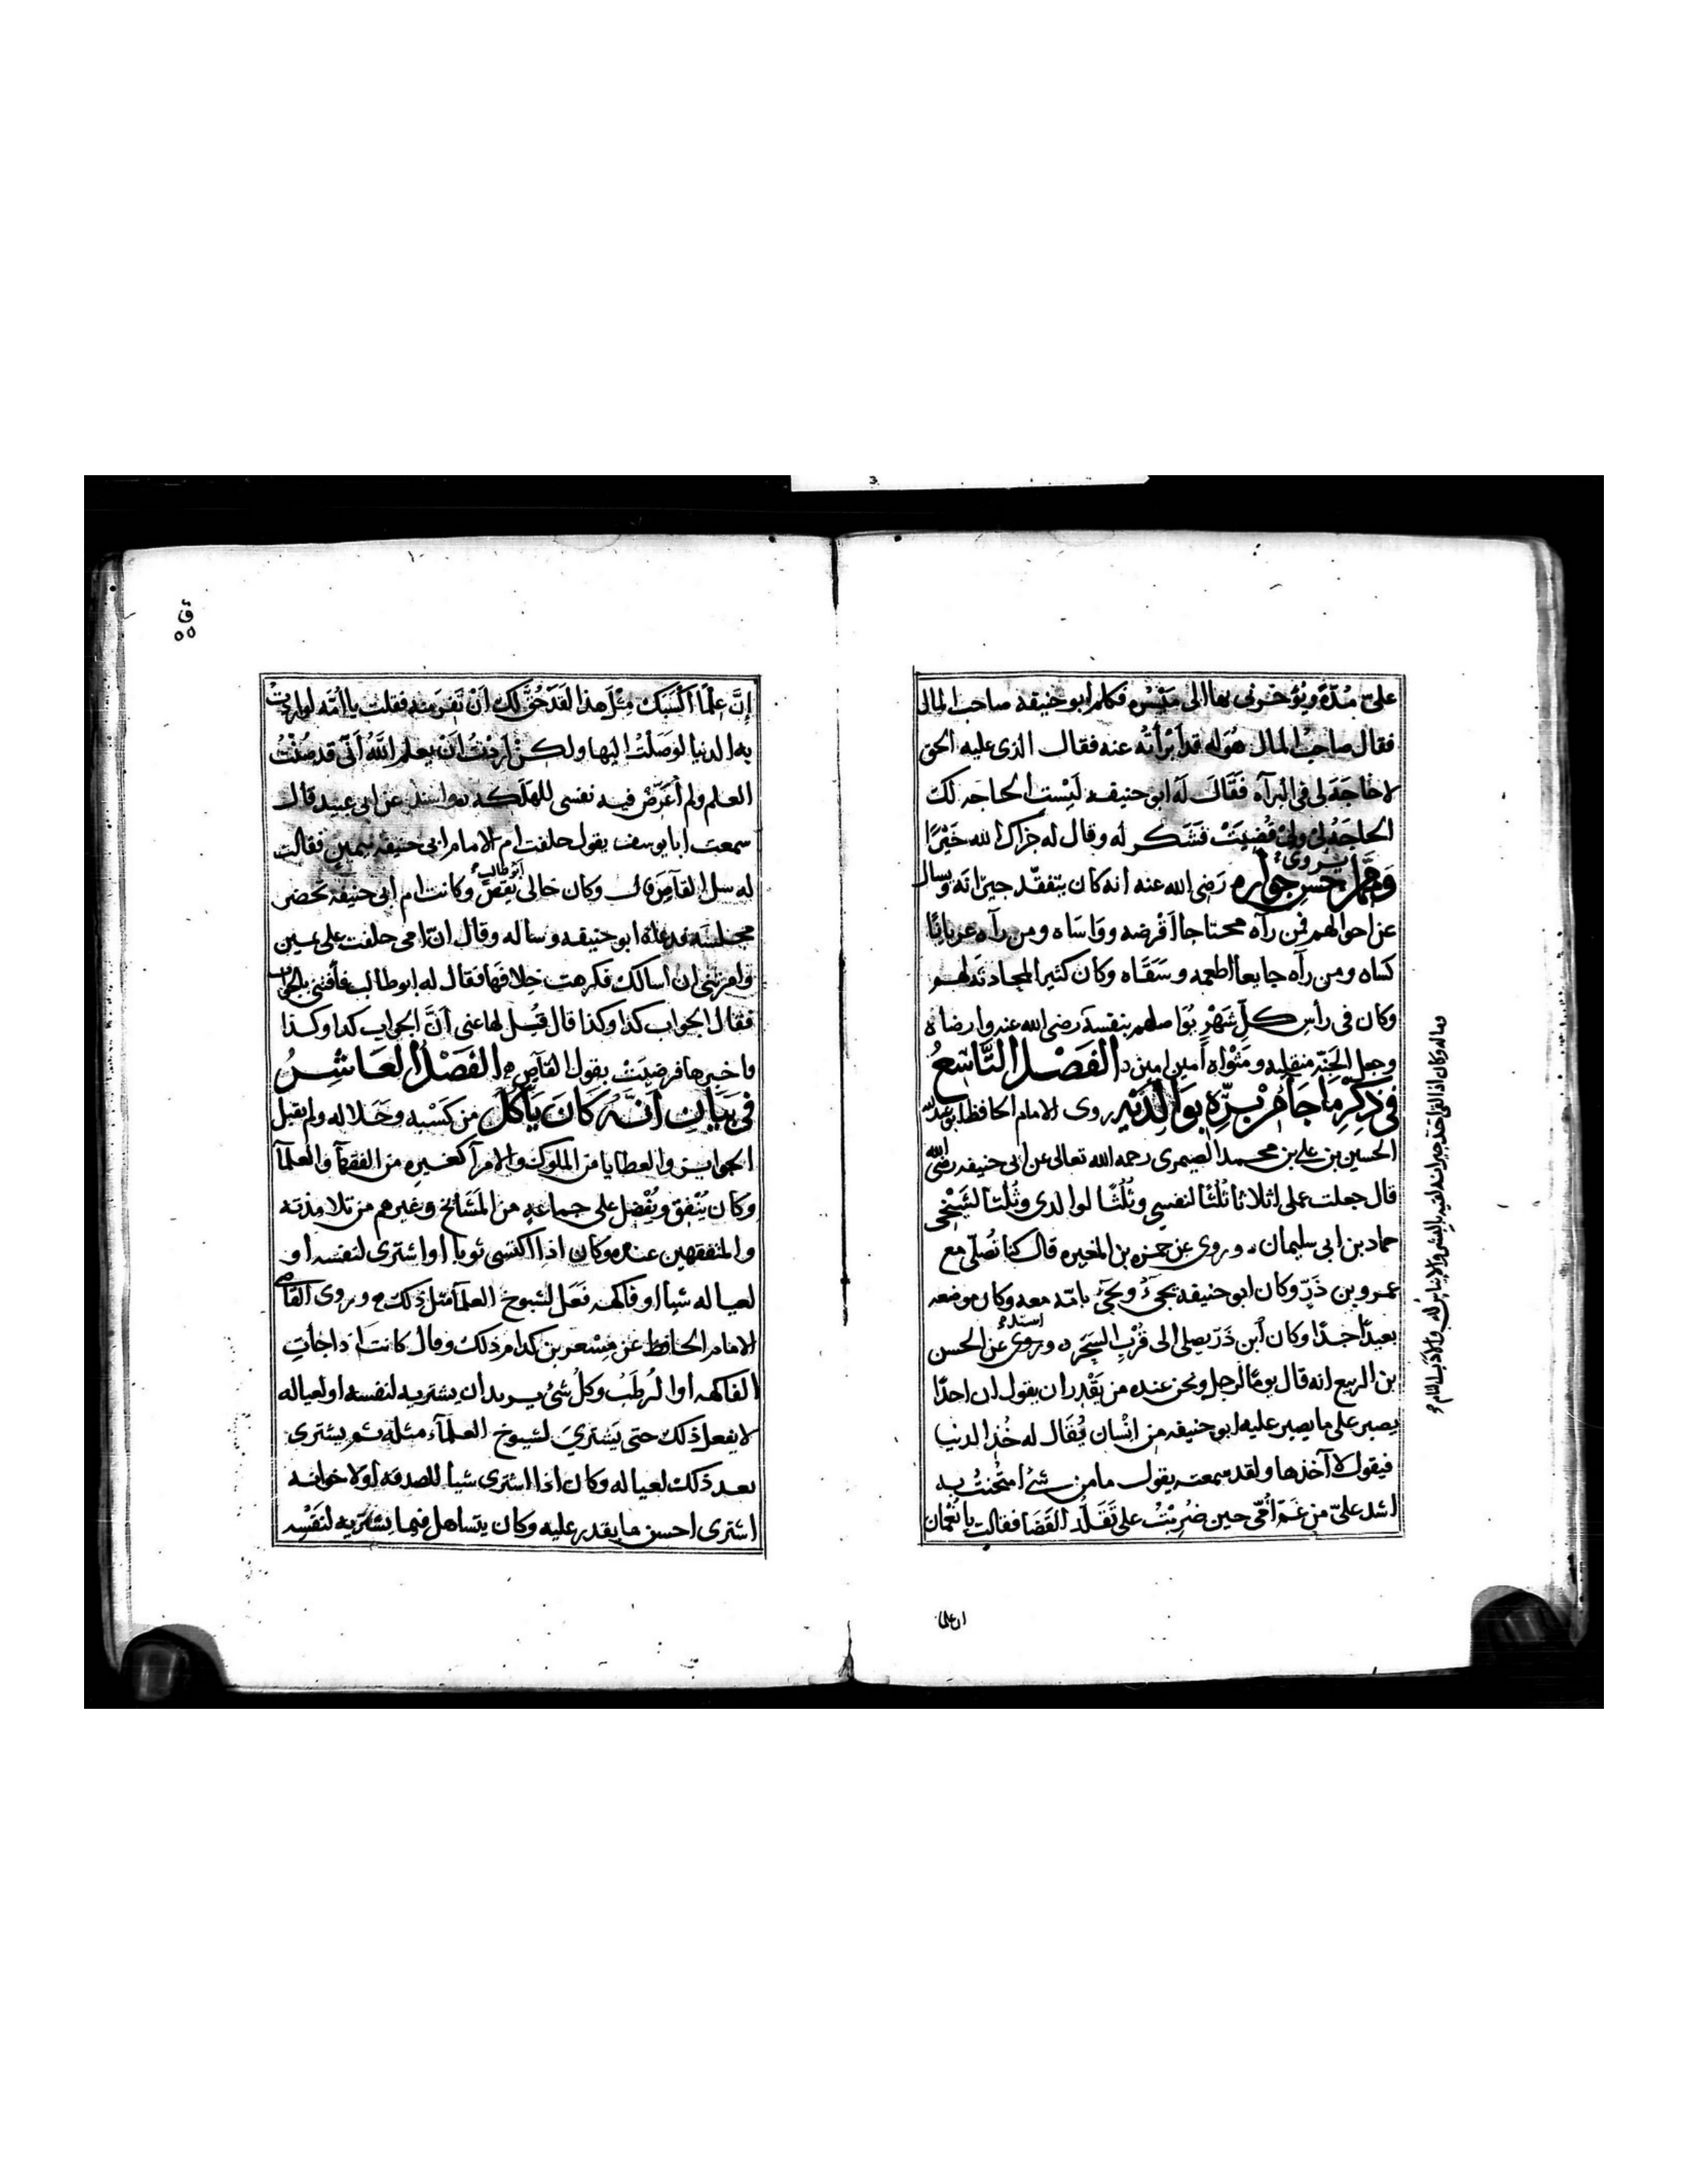 علىّ مُدّة ويُؤخرنى بها الى مَيْسَره فكلم ابو حنيفة صاحب المال
فقال صاحب المال هُوَ له قد أبرأتُه عنه فقال الذى عليه الحق
لا حَاجَةَ لى فى البرآه فَقَالَ لَه ابو حنيفه لَيْسَتِ الحاجه لك
الحاجَةُ لى ولى قُضِيَتْ فشَكَر له وقال له جزاك الله خَيْرًا
يروى
حسن جواره رَضى الله عنه انه كان يتفقّد جيرانَه ويسال
عن احوالهم فمن رآه محتاجا اقرضه ووَاسَاه ومن رآه عريانًا
كساه ومن رآه جايعا اطعمه وسَقَاه وكان كثير المجاد نة لهم
وكان فى رأس كلّ شَهْرٍ يُواصلهم بنفسه رضى الله عنه وارضاه
وجعل الجنّه منقلبه ومَثْوَاه آمين امين الفَصْل التَّاسِعُ
فى ذِكْرِ مَا جَاءَ مْن بِرِّه بوَالِدَيْهِ روى الامام الحافظ ابو عبد الله
الحسين بن على بن محمد الصيمرى رحمه الله تعالى عن ابى حنيفه رضى الله
قال جعلت عملى اثلاثا ثُلُثًا لنفسى وثُلُثًا لوالدى وثُلثًا لشَيْخى
حماد بن ابى سليمان وروى عن حمزه بن المغيره قال كنا نُصلّى مع
عمرو بن ذَرّ وكان ابو حنيفه يجىءُ ويجىء بامّه معه وكان موضعه
بعيدًا جدّا وكان ابن ذَرّ يصلى الى قُرْبِ السَحَره وروى عن الحسن
بن الربيع انه قال يومًا لرجل ونحن عنده من يَقْدر ان يقول ان احدًا
يصبر على ما يصبر عليه ابو حنيفه من انْسان يُقَال له خُذ الدنيا
فيقول لا آخذها ولقد سمعته يقول ما من شئ امتُحنتُ به
اشد علىّ من غَمّ اُمّى حين ضُرِبْتُ على تَقَلُّد القَضَا فقالت يا نُعْمان
ان علما
وماله وكان اذا لقى احد جيرانه لقيه بالبشر والايناس
ق
٥٥
إنَّ عِلمًا اَكْسَبَك مِثْلَ هذا لقَدْ حُقَّ لك اَنْ تَفرّ منه فقلت يا امّه لو اردتُ
به الدنيا لوَصَلتُ اليها ولكن اردْتُ اَنْ يعلم اللَّهُ اَنّى قد صُنْتُ
العلم ولم أُعَرّضْ فيه نفسى للهلكه واسند عن ابى عبيد قال
سمعت ابا يوسف يقول حلفت ام الامام ابى حنيفه بيمين فقالت
ابو طالب
له سل القآص قال وكان خالى يَقُصّ وكانت ام ابى حنيفه تحضر
مجلسَه فدعاه ابو حنيفه وساله وقال انّ امى حلفت على يمين
وامرتنى ان اسالك فكرهت خِلافَها فقال له ابو طالب فأفتنى بالجواب
فقال الجواب كذا وكذا قال قُل لها عنى أنَّ الجواب كذا وكذا
فاخبرها فرضِيَتْ بقول القآص الفَصْلُ العَاشِرُ
فى بَيَانِ اَنَّه كَانَ يَأكُلُ من كَسْبه وحَلاله ولم يقبل
الجوايز والعطايا من الملوك والامرآ كغيره من الفقهآ والعلمآ
وكان يُنْفق ويُفْضل على جماعه من المَشَائخ وغيرهم من تلامذته
والمتفقهين عنده وكان اذا اكتسى ثوبا او اشترى لنفسه او
لعياله شيا او فاكهه فَعَل لشيوخ العلمآ مثل ذلك وروى القاضى
الامام الحافظ عن مِسْعر بن كدام ذلك وقال كانت اذا جاتِ
الفاكهه او الرُطَبُ وكل شئ يريد ان يشتريه لنفسه او لعياله
لا يفعل ذلك حتى يَشترىَ لشيوخ العلمآء مثله ثم يشترى
بعد ذلك لعياله وكان اذا اشترى شيا للصدقه او لاخوانه
اشترى احسن ما يقدر عليه وكان يتساهل فيما يشتريه لنَفْسِه